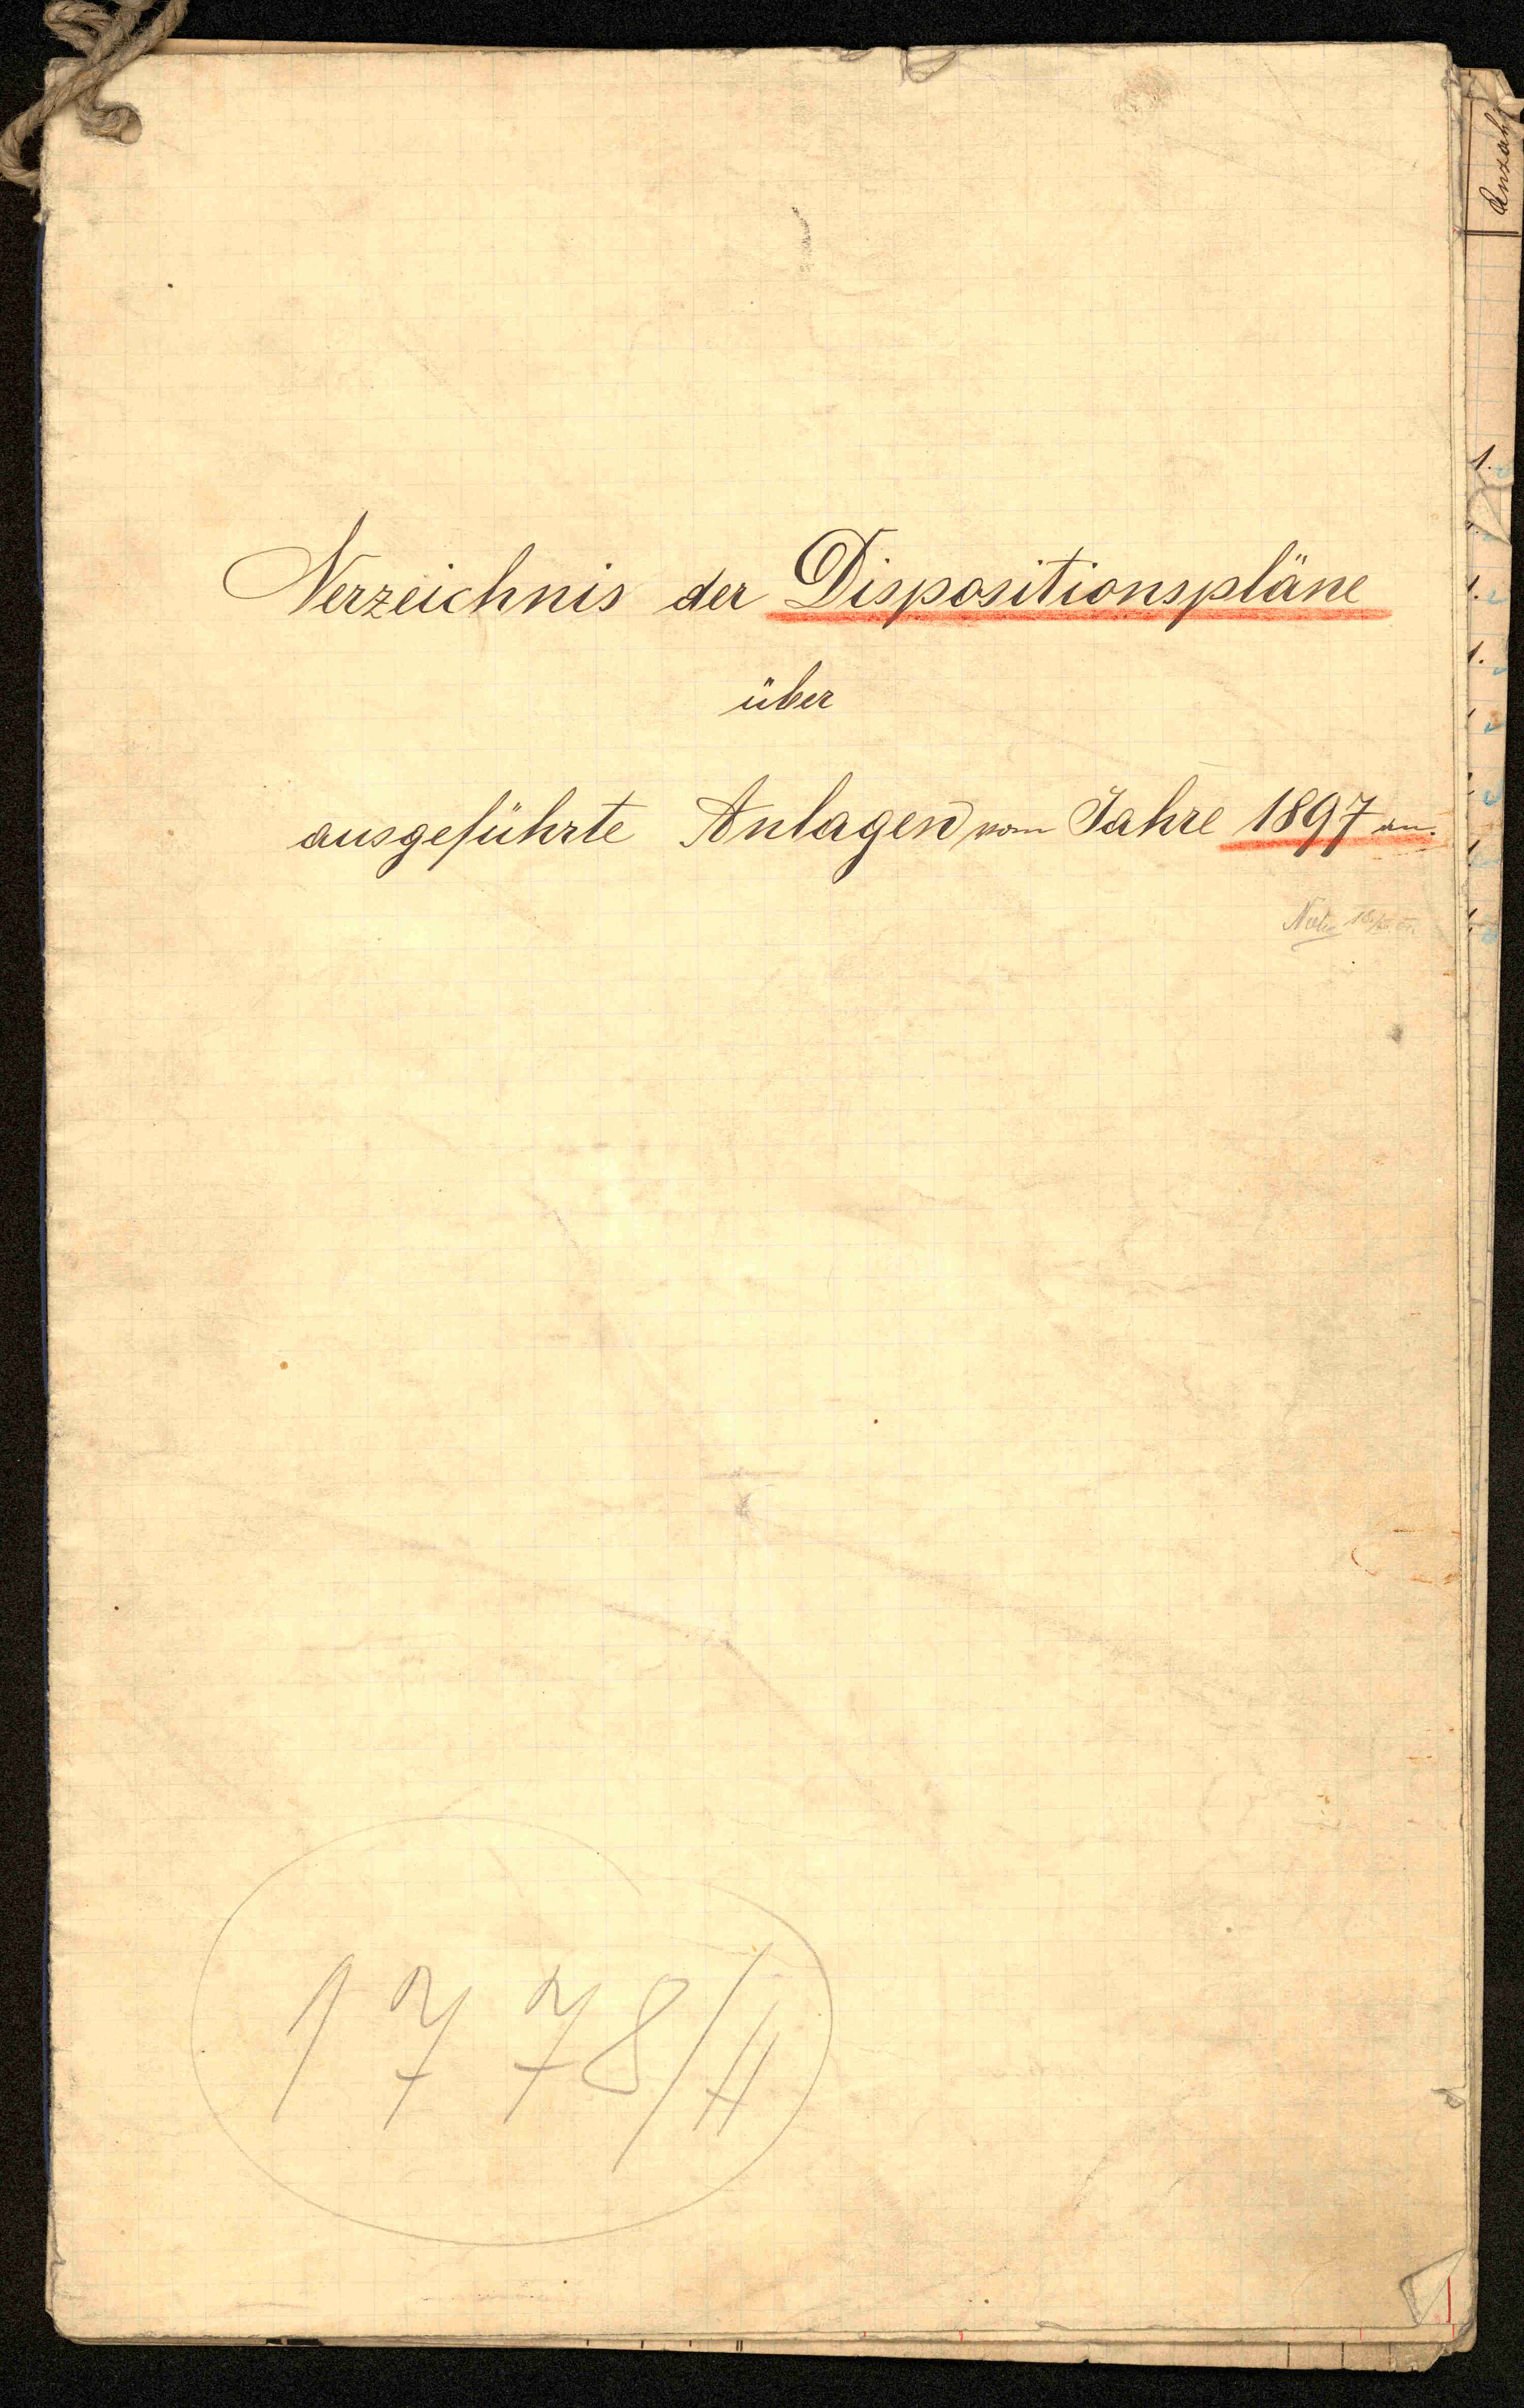 Verzeichnis der Dispositionspläne
über
ausgeführte Anlagen vom Jahre 1897 an.
1778/II
Anzahl
1.
1.
1.